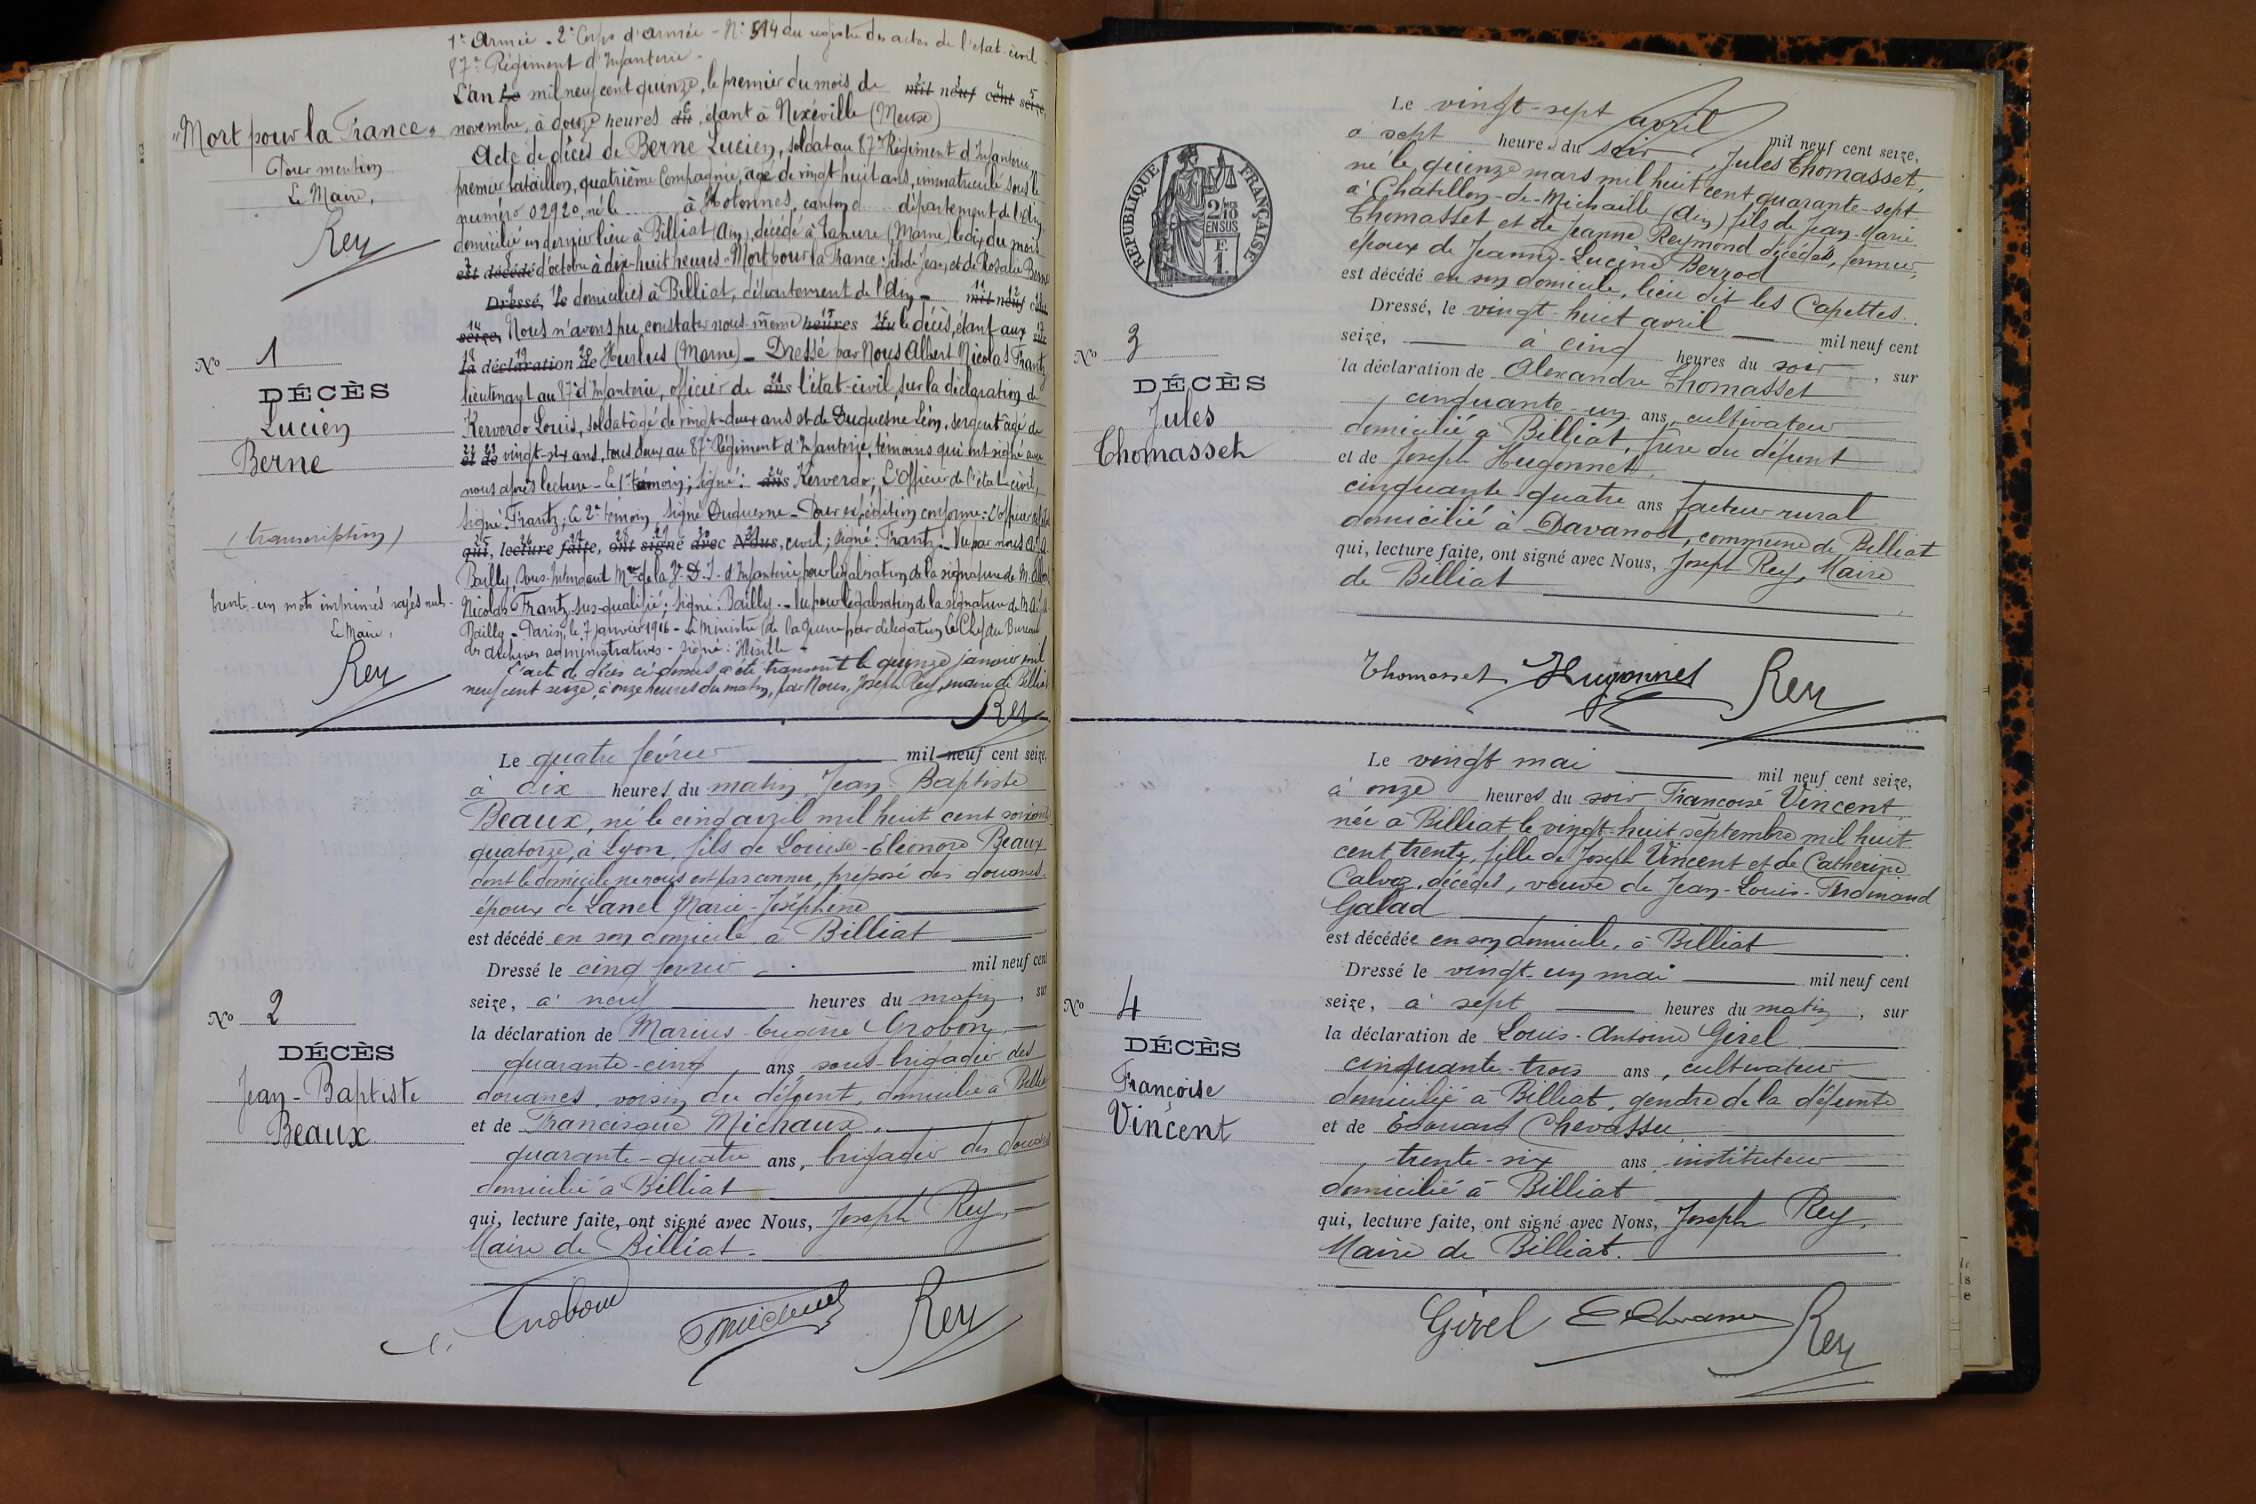 1e Armée - 2e Corps d'armée - N° 514 du registre des actes de l'état-civil
87e Régiment d'Infanterie -
L'an Le mil neuf cent quinze, le premier du mois de mil neuf cent seize,
novembre, à douze heures du, étant à Nixéville (Meuse)
"Mort pour la France"
Pour mention
Le Maire,
Rey
Acte de décès de Berne Lucien, soldat au 87e Régiment d'Infanterie,
premier bataillon, quatrième Compagnie, agé de vingt huit ans, immatriculé sous le
numéro 02920, né le à Hotonnes, canton d département de l'Ain,
domicilié en dernier lieu à Billiat (Ain), décédé à Tahure (Marne) le dix du mois
est décédé d'octobre à dix-huit heures - Mort pour la France: fils de Jean et de Rosalie Berne
Dressé, le domiciliés à Billiat, département de l'Ain - mil neuf cent
seize, Nous n'avons pu constater nous-même heures du le décès, étant aux sur
la déclaration de Hurlus (Marne) - Dressé par Nous Albert Nicolas Frantz
lieutenant au 87e d'Infanterie, officier de ans l'état-civil, sur la déclaration de
Kerverdo Louis, soldat âgé de vingt-deux ans et de Duquesne Léon, sergent âgé de
et de vingt-six ans, tous deux au 87e Régiment d'Infanterie, témoins qui ont signé avec
nous après lecture - Le 1er témoin; signé: ans Kerverdo; L'Officier de l'état-civil,
signé: Frantz; Le 2e témoin, signé Duquesne - Pour expédition conforme: L'officier de l'état
qui, lecture faite, ont signé avec Nous, civil; signé: Frantz. Vu par nous
Bailly, Sous-Intendant Mre de la D.I. d'Infanterie pour légalisation de la signature de M. Albert
Nicolas Frantz sus-qualifié; signé: Bailly. - Vu pour légalisation de la signature de M.
Bailly - Paris, le 7 janvier 1916 - Le Ministre de la Guerre par délégation Le Chef du Bureau
des Archives administratives - signé:
L'acte de décès ci-dessus a été transcrit le quinze janvier mil
neuf cent seize, à onze heures du matin, par Nous, Joseph Rey, maire de Billiat
Rey
No 1
DÉCÈS
Lucien
Berne
(transcription)
trente-un mots imprimés rayés nuls.
Le Maire,
Rey
Le quatre février mil neuf cent seize,
à dix heures du matin, Jean-Baptiste
Beaux, né le cinq avril mil huit cent soixante
quatorze, à Lyon, fils de Louise-Éléonore Beaux
dont le domicile ne nous est pas connu, préposé des douanes,
époux de Lanel Marie-Joséphine
est décédé en son domicile, à Billiat
Dressé le cinq février mil neuf cent
seize, à neuf heures du matin, sur
la déclaration de Marius-Eugène Grobon,
quarante-cinq ans, sous-brigadier des
douanes, voisin du défunt, domicilié à Billiat
et de Francisque Michaux,
quarante-quatre ans, brigadier des douanes
domicilié à Billiat
qui, lecture faite, ont signé avec Nous, Joseph Rey,
Maire de Billiat.
No 2
DÉCÈS
Jean-Baptiste
Beaux
Grobon Michaux Rey
RÉPUBLIQUE FRANÇAISE
2/10
EN SUS
F.
1.
Le vingt-sept avril mil neuf cent seize,
à sept heures du soir, Jules Thomasset,
né le quinze mars mil huit cent quarante-sept
à Chatillon-de-Michaille (Ain) fils de Jean-Marie
Thomasset et de Jeanne Reymond décédés, fermier,
époux de Jeanne-Lucine Berrod
est décédé en son domicile, lieu dit les Capettes.
Dressé, le vingt-huit avril mil neuf cent
seize, à cinq heures du soir, sur
la déclaration de Alexandre Thomasset
cinquante-un ans, cultivateur
domicilié à Billiat, frère du défunt
et de Joseph Hugonnet,
cinquante-quatre ans facteur rural
domicilié à Davanod, commune de Billiat
qui, lecture faite, ont signé avec Nous, Joseph Rey, Maire
de Billiat
No 3
DÉCÈS
Jules
Thomasset
Thomasset Hugonnet Rey
Le vingt mai mil neuf cent seize,
à onze heures du soir Françoise Vincent,
née à Billiat le vingt-huit septembre mil huit
cent trente, fille de Joseph Vincent et de Catherine
Calvoz, décédés, veuve de Jean-Louis-Ferdinand
Galad
est décédée en son domicile, à Billiat
Dressé le vingt-un mai mil neuf cent
seize, à sept heures du matin, sur
la déclaration de Louis-Antoine Girel
cinquante-trois ans, cultivateur
domicilié à Billiat, gendre de la défunte
et de Edouard Chevassu
trente-six ans, instituteur
domicilié à Billiat
qui, lecture faite, ont signé avec Nous, Joseph Rey,
Maire de Billiat.
No 4
DÉCÈS
Françoise
Vincent
Girel E Chevassu Rey